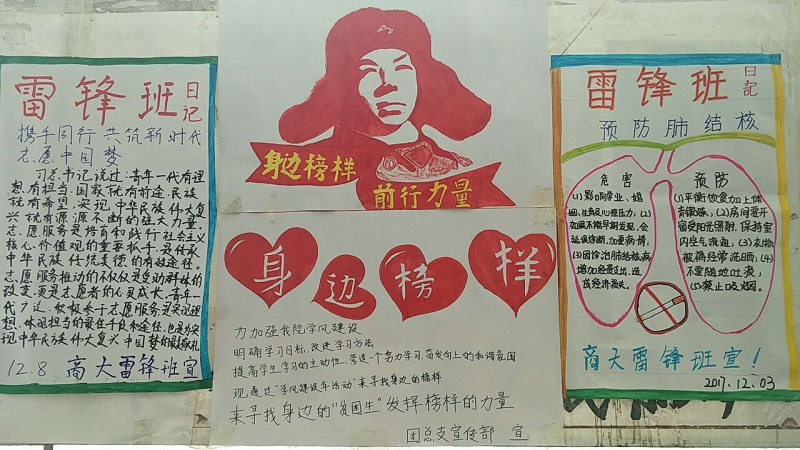 雷锋班
日记
携手同行 共筑新时代
志愿中国梦
习总书记说过:青年一代有理
想,有担当,国家就有前途,民族
就有希望,实现中华民族伟大复
兴就有源源不断的强大力量.
志愿服务是培育和践行社会主义
核心价值观的重要抓手,是传承
中华民族传统美德的有效途径.
志愿服务推动的不仅仅是受助群体的
改变,更是志愿者的心灵成长,青年一
代
积极参于志愿服务是实现理
想,体现担当的最佳手段和途径,也是为实
现中华民族伟大复兴中国梦的
12.8 商大雷锋班宣
身边榜样
前行力量
身边榜样
力加强我院学风建设
明确学习目标,改进学习方法
提高学生学习的主动性,营造一个努力学习,奋发向上的和谐氛围
现通过“学风建设年活动”来寻找身边的榜样
来寻找身边的“贫困生”发挥榜样的力量
团总支宣传部 宣
雷锋班
日记
预防肺结核
危害
(1)影响学业,婚
姻,生育及心理压力;(2)
如果不能早期发现,会
延误诊断,加重病情;
(3)因诊治肺结核病
增加经费支出,造
成经济损失.
预防
(1)平衡饮食加上体
育锻炼;(2)房间要开
窗受阳光照射,保持室
内空气流通;(3)衣物,
被褥经常洗晒;(4)
不要随地吐痰;
(5)禁止吸烟.
商大雷锋班宣!
2017.12.03